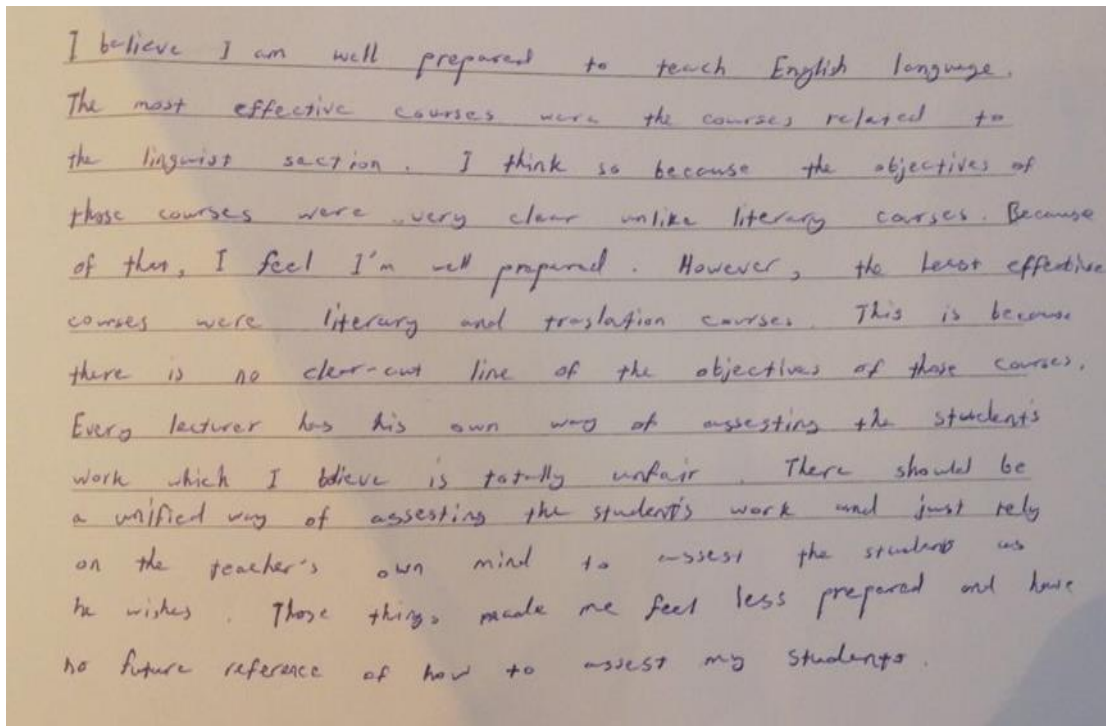 I believe I am well prepared to teach English language.
The most effective courses were the courses related to
the linguist section. I think so because the objectives of
those courses were very clear unlike literary courses. Because
of that, I feel I'm well prepared. However, the least effective
courses were literary and traslation courses. This is because
there is no clear-cut line of the objectives of those courses.
Every lecturer has his own way of assesting the student's
work which I bdieve is totally unfair. There should be
a unified way of assesting the student's work and just rely
on the teacher's own mind to assest the students as
he wishes. Those things made me feel less prepared and have
no future reference of how to assest my students.